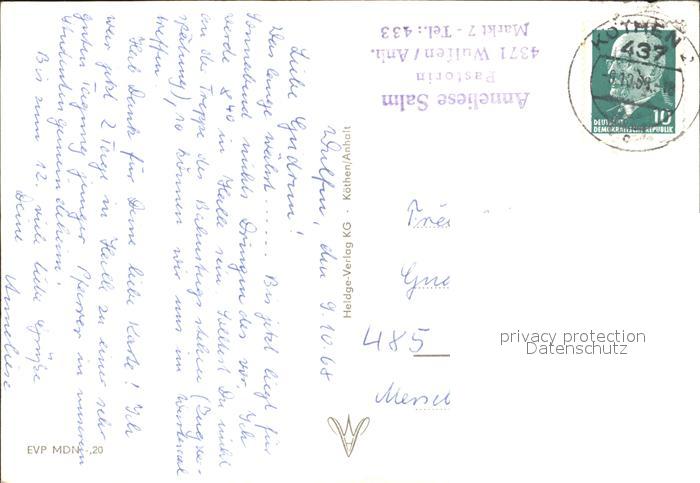 Wulfen, den 9.10.68
Liebe Gudrun!
Was lange währt...... Bis jetzt liegt für
Sonnabend nichts Dringendes vor. Ich
werde 8.40 in Halle sein. Solltest Du nicht
an der Treppe des Bahnsteigs stehen (Zugver-
spätung), so können wir uns im Wartesaal
treffen.
Hab Dank für Deine liebe Karte! Ich
war jetzt 2 Tage in Halle zu einer sehr
guten Tagung junger Pfarrer in unserem
Studentengemeindeheim.
Bis zum 12. viele liebe Grüße
Deine
Anneliese
EVP MDN -,20
Heldge-Verlag KG · Köthen/Anhalt
Anneliese Salm
Pastorin
4371 Wulfen / Anh.
Markt 7 - Tel.: 433
KÖTHEN 2
437
DEUTSCHE
DEMOKRATISCHE REPUBLIK
10
Gud
485
Merse
privacy protection
Datenschutz